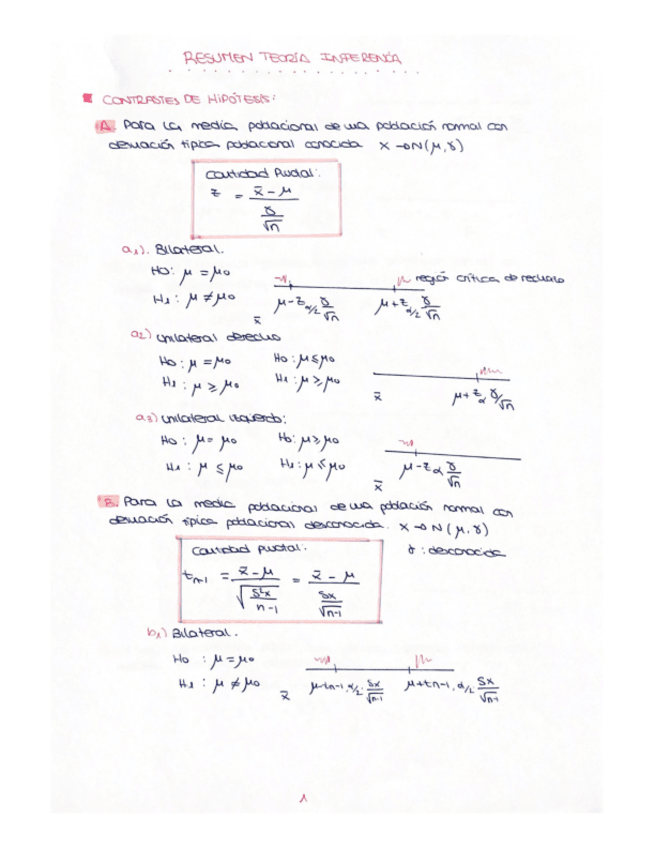 RESUMEN TEORÍA INFERENCIA
CONTRASTES DE HIPÓTESIS:
A. Para la media poblacional de una población normal con
desviación típica poblacional conocida X → N(μ, σ)
Cantidad Pivotal:
z = (x̄ - μ) / (σ/√n)
a₁). Bilateral.
Ho: μ = μo
H1: μ ≠ μo
región crítica de rechazo
μ - z α/2 σ/√n
μ + z α/2 σ/√n
x̄
a2) Unilateral derecho
Ho: μ = μo Ho: μ ≤ μo
H1: μ ≥ μo H1: μ ≥ μo
x̄ μ + z α σ/√n
a3) Unilateral izquierdo:
Ho: μ = μo Ho: μ ≥ μo
H1: μ ≤ μo H1: μ ≤ μo
x̄ μ - z α σ/√n
B. Para la media poblacional de una población normal con
desviación típica poblacional desconocida. X → N(μ, σ)
Cantidad Pivotal:
σ: desconocida
tn-1 = (x̄ - μ) / √(S²x/(n-1)) = (x̄ - μ) / (Sx/√n-1)
b₁) Bilateral.
Ho: μ = μo
H1: μ ≠ μo
x̄ μ - tn-1, α/2 · Sx/√n-1 μ + tn-1, α/2 Sx/√n-1
1